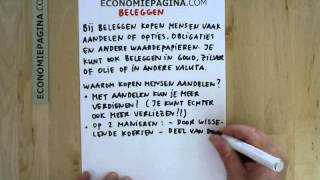 ECONOMIEPAGINA.COM
BELEGGEN
BIJ BELEGGEN KOPEN MENSEN VAAK
AANDELEN OF OPTIES, OBLIGATIES
EN ANDERE WAARDEPAPIEREN. JE
KUNT OOK BELEGGEN IN GOUD, ZILVER
OF OLIE OF IN ANDERE VALUTA.
WAAROM KOPEN MENSEN AANDELEN?
• MET AANDELEN KUN JE MEER
VERDIENEN! (JE KUNT ECHTER
OOK MEER VERLIEZEN!!)
• OP 2 MANIEREN: - DOOR WISSE-
LENDE KOERSEN - DEEL VAN